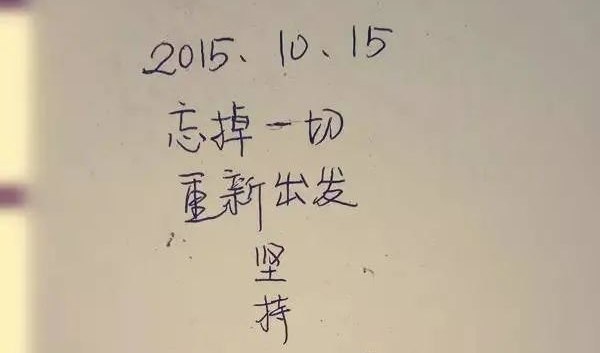 2015、10、15
忘掉一切
重新出发
坚
持